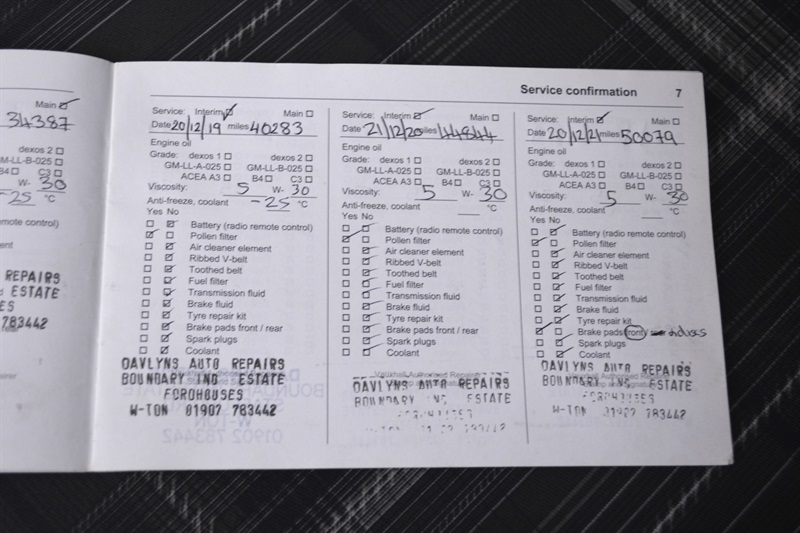 Service confirmation 7
Main ☑
34387
dexos 2 ☐
GM-LL-B-025 ☐
B4 ☐ C3 ☐
W- 30
-25 °C
REPAIRS
ESTATE
783442
Service: Interim ☑ Main ☐
Date 20/12/19 miles 40283
Engine oil
Grade: dexos 1 ☐ dexos 2 ☐
GM-LL-A-025 ☐ GM-LL-B-025 ☐
ACEA A3 ☐ B4 ☐ C3 ☐
Viscosity: 5 W- 30
Anti-freeze, coolant -25 °C
Yes No
☐ ☑ Battery (radio remote control)
☑ ☐ Pollen filter
☐ ☑ Air cleaner element
☐ ☑ Ribbed V-belt
☐ ☑ Toothed belt
☐ ☑ Fuel filter
☐ ☑ Transmission fluid
☐ ☑ Brake fluid
☐ ☑ Tyre repair kit
☐ ☑ Brake pads front / rear
☐ ☑ Spark plugs
☐ ☑ Coolant
OAVLYNS AUTO REPAIRS
BOUNDARY IND ESTATE
FORDHOUSES
W-TON 01902 783442
Service: Interim ☑ Main ☐
Date 21/12/20 miles 44844
Engine oil
Grade: dexos 1 ☐ dexos 2 ☐
GM-LL-A-025 ☐ GM-LL-B-025 ☐
ACEA A3 ☐ B4 ☐ C3 ☐
Viscosity: 5 W- 30
Anti-freeze, coolant °C
Yes No
☐ ☐ Battery (radio remote control)
☑ ☐ Pollen filter
☐ ☑ Air cleaner element
☐ ☑ Ribbed V-belt
☐ ☑ Toothed belt
☐ ☑ Fuel filter
☐ ☑ Transmission fluid
☐ ☑ Brake fluid
☐ ☑ Tyre repair kit
☐ ☑ Brake pads front / rear
☐ ☑ Spark plugs
☐ ☑ Coolant
OAVLYNS AUTO REPAIRS
BOUNDARY ESTATE
Service: Interim ☑ Main ☐
Date 20/12/21 miles 50079
Engine oil
Grade: dexos 1 ☐ dexos 2 ☐
GM-LL-A-025 ☐ GM-LL-B-025 ☐
ACEA A3 ☐ B4 ☐ C3 ☐
Viscosity: 5 W- 30
Anti-freeze, coolant °C
Yes No
☐ ☑ Battery (radio remote control)
☑ ☐ Pollen filter
☐ ☑ Air cleaner element
☐ ☑ Ribbed V-belt
☐ ☑ Toothed belt
☐ ☑ Fuel filter
☐ ☑ Transmission fluid
☐ ☑ Brake fluid
☐ ☑ Tyre repair kit
☑ ☐ Brake pads front /
☐ ☑ Spark plugs
☐ ☑ Coolant
OAVLYNS AUTO REPAIRS
BOUNDARY ESTATE
W-TON 01902 783442